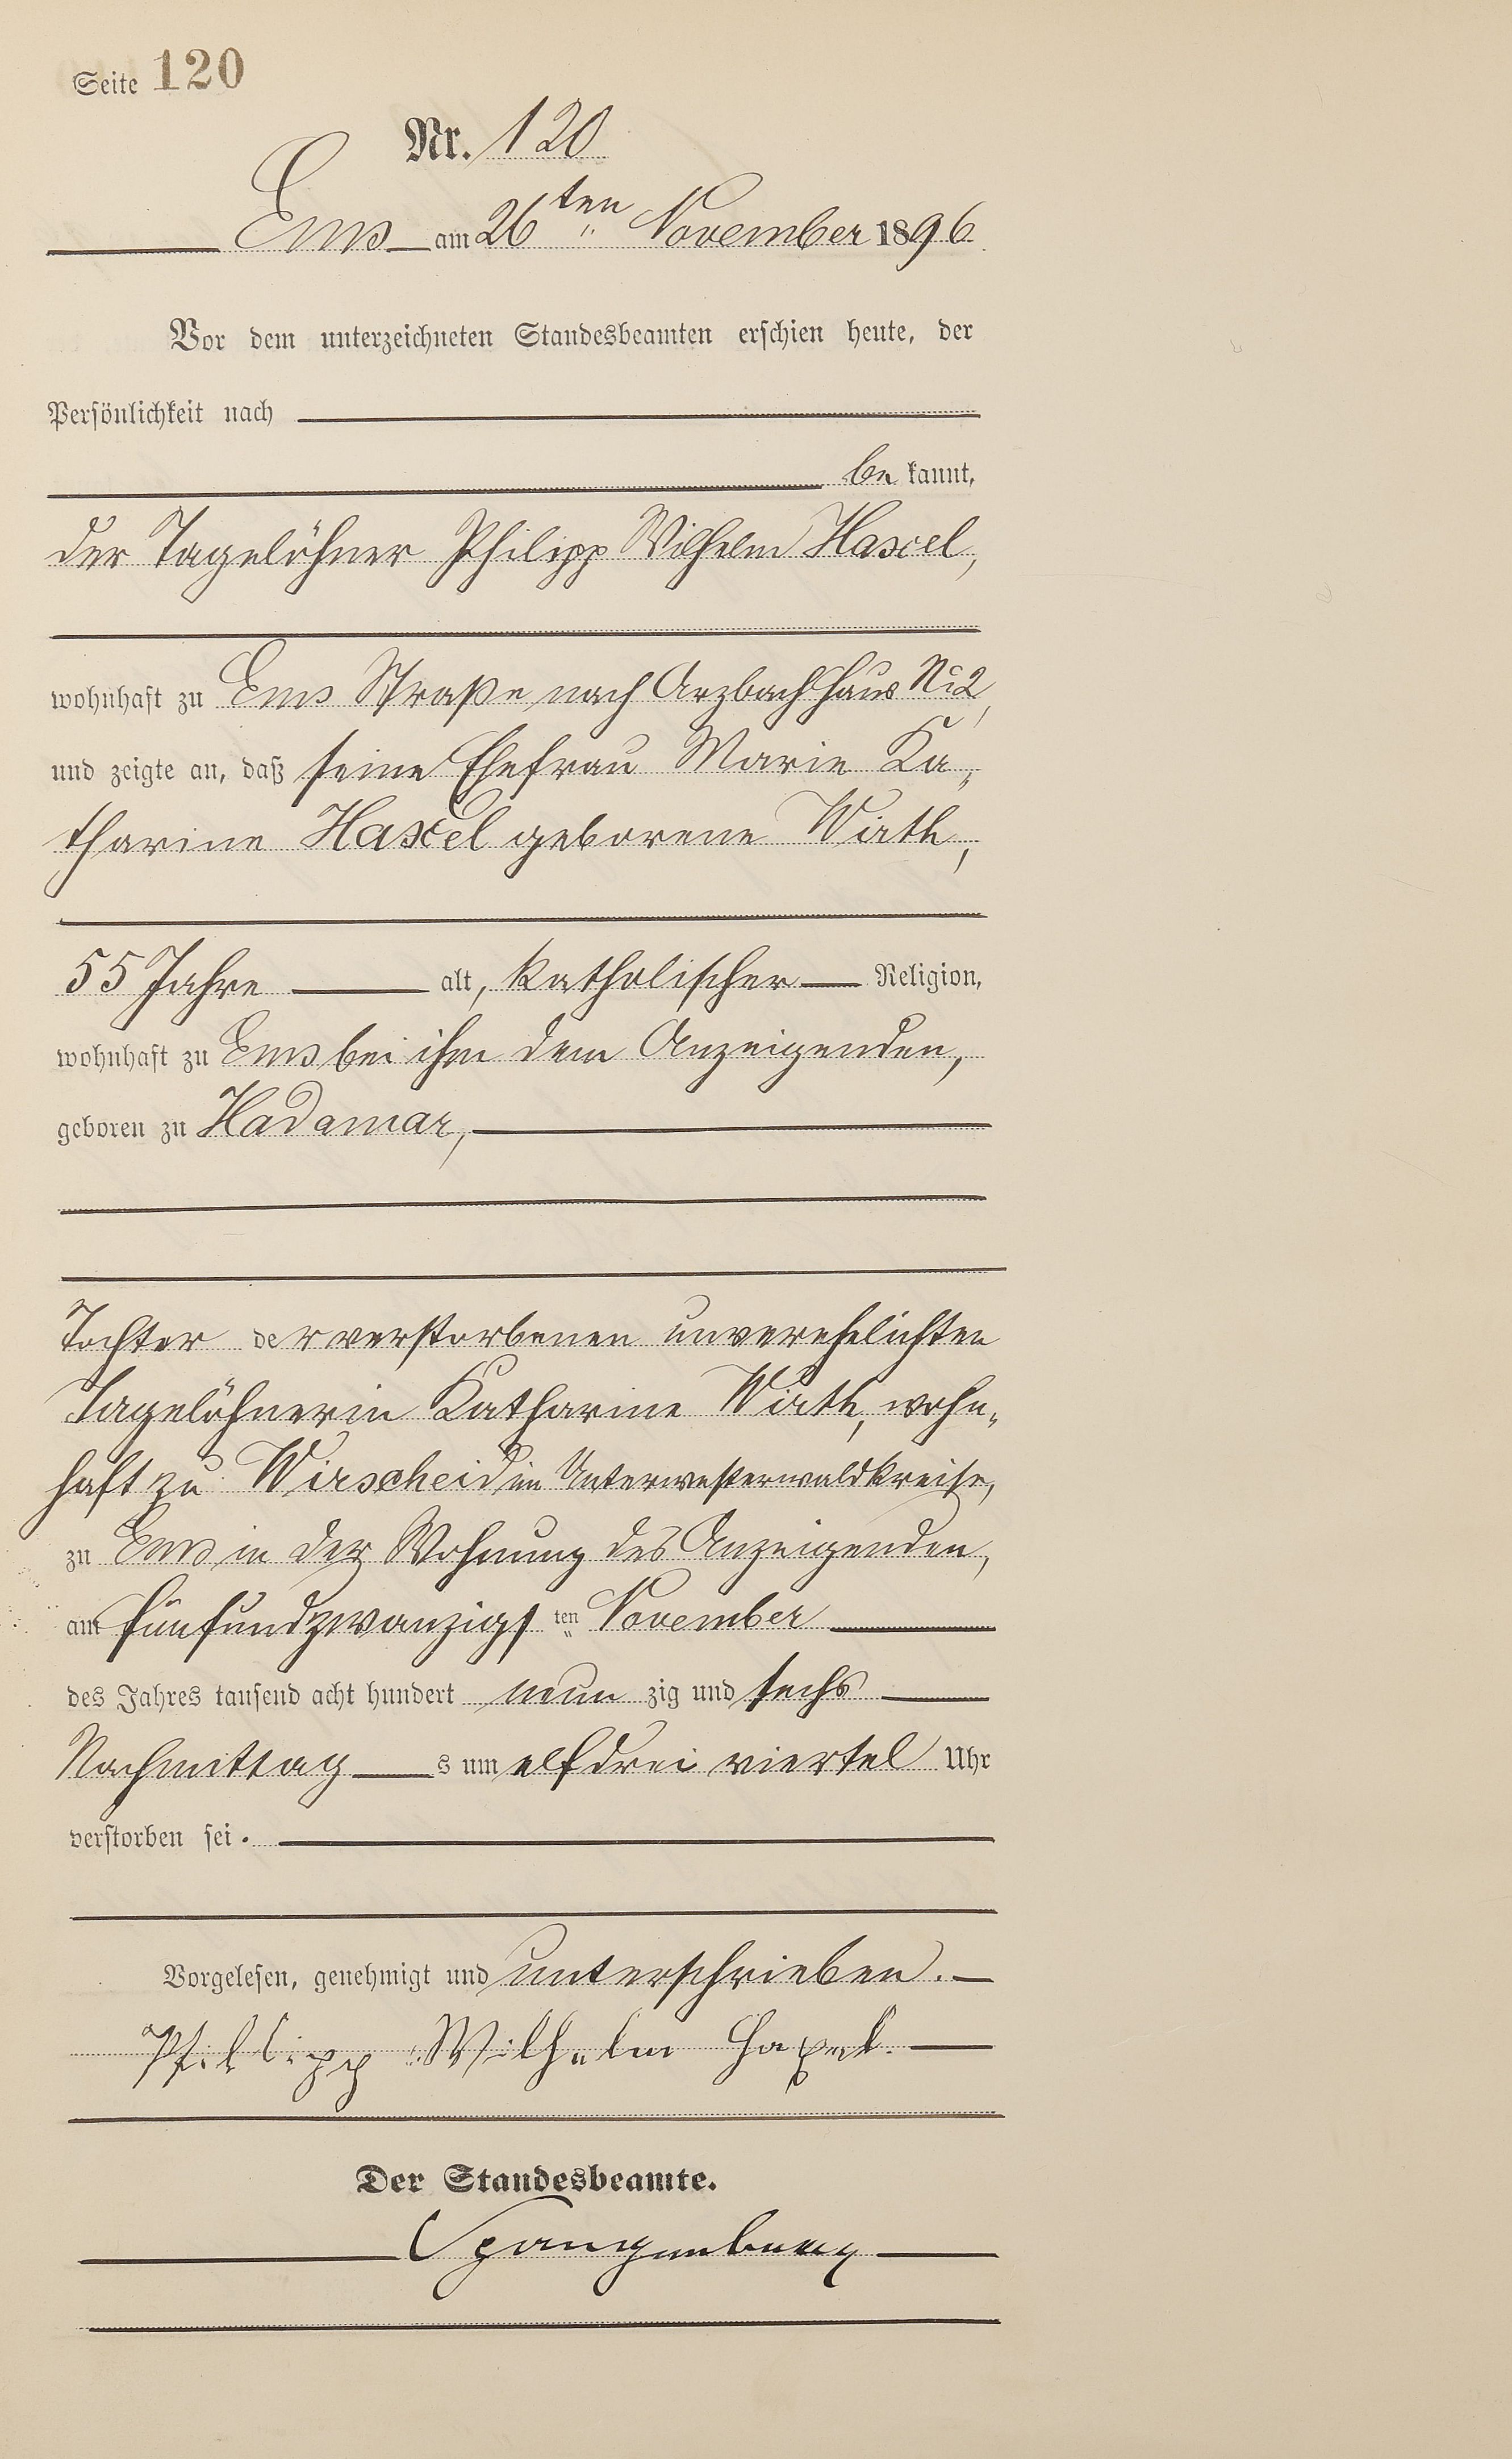 Seite 120
Nr. 120
Ems am 26ten November 1896
Vor dem unterzeichneten Standesbeamten erschien heute, der
Persönlichkeit nach
be kannt,
der Tagelöhner Philipp Wilhelm Haxel,
wohnhaft zu Ems Straße nach Arzbach Haus No 2,
und zeigte an, daß seine Ehefrau Marie Ka„
tharine Haxel geborene Wirth,
55 Jahre alt, katholischer Religion,
wohnhaft zu Ems bei ihm dem Anzeigenden,
geboren zu Hadamar,
Tochter der verstorbenen unverehelichten
Tagelöhnerin Katharine Wirth, wohn„
haft zu Wirscheid im Unterwesterwaldkreise,
zu Ems in der Wohnung des Anzeigenden,
am fünfundzwanzigsten November
des Jahres tausend acht hundert neun zig und sechs
Nachmittag s um elf drei viertel Uhr
verstorben sei.
Vorgelesen, genehmigt und unterschrieben.
Philipp Wilhelm Haxel.
Der Standesbeamte.
Spangenberg